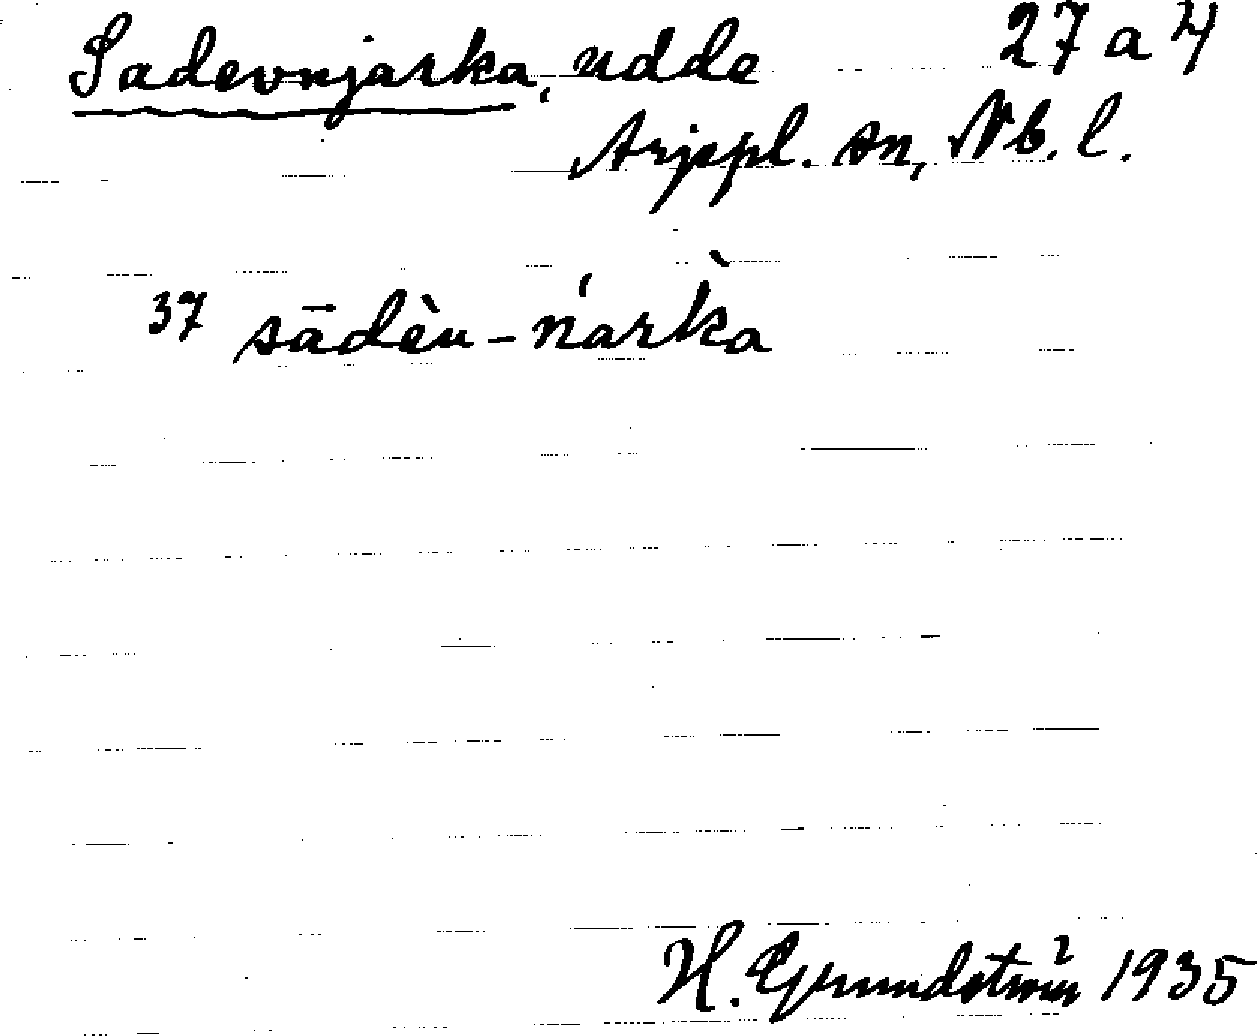 Sadevnjarka, udde 27 a 4
Arjepl. sn, Nb. l.
37 sādèu-ńarᴋ̀a
H. Grundström 1935